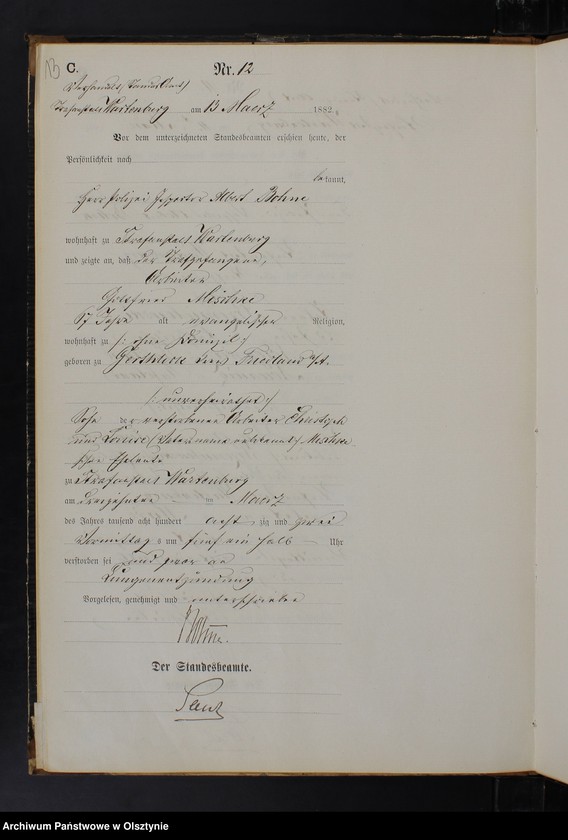 13
C.
Nr. 12
Strafanstalt Wartenburg am 13 Maerz 1882.
Vor dem unterzeichneten Standesbeamten erschien heute, der
Persönlichkeit nach
bekannt,
Herr Polizei Inspector Albert Bohne
wohnhaft zu Strafanstalt Wartenburg
und zeigte an, daß der Strafgefangene,
Arbeiter
Gottfried
57 Jahre alt evangelischer Religion,
wohnhaft zu /: ohne Domizil :/
geboren zu Friedland
/: unverheirathet :/
Sohn der verstorbenen Arbeiter Christoph
und Louise /: Vatersname unbekannt :/
schen Eheleute
zu Strafanstalt Wartenburg
am dreizehnten im Maerz
des Jahres tausend acht hundert acht zig und zwei
Vormittags um fünf ein halb Uhr
verstorben sei und zwar an
Lungenentzündung
Vorgelesen, genehmigt und unterschrieben
Bohne.
Der Standesbeamte.
Archiwum Państwowe w Olsztynie